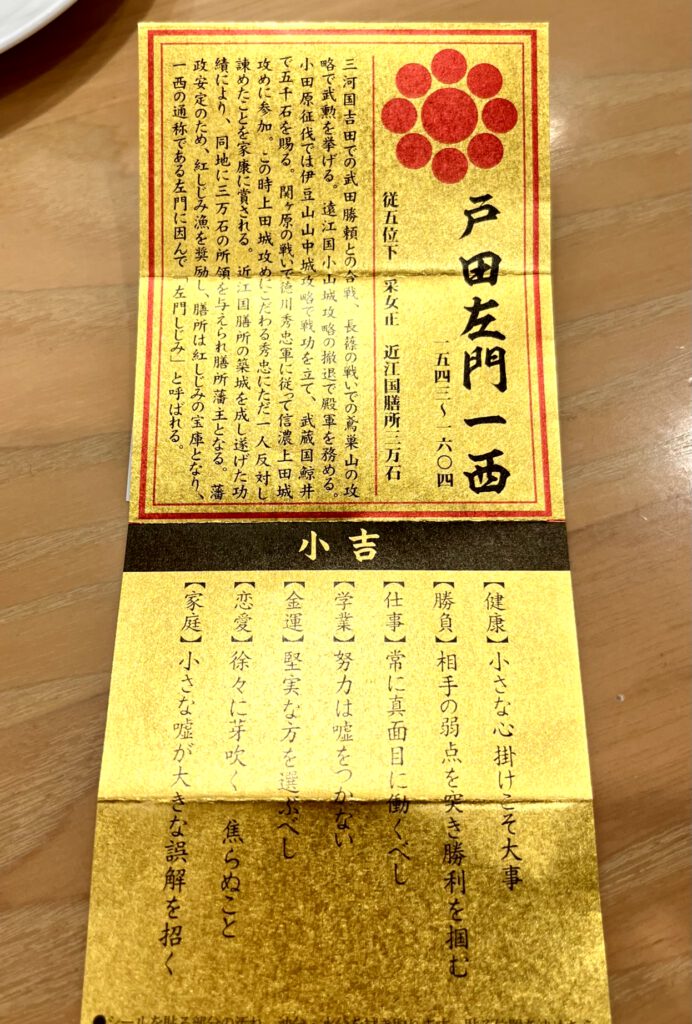 戸田左門一西
一五四三〜一六〇四
従五位下　采女正　近江国膳所三万石
三河国吉田での武田勝頼との合戦、長篠の戦いでの鳶巣山の攻
略で武勲を挙げる。遠江国小山城攻略の撤退で殿軍を務める。
小田原征伐では伊豆山中城攻略で戦功を立て、武蔵国鯨井
で五千石を賜る。関ヶ原の戦いで徳川秀忠軍に従って信濃上田城
攻めに参加。この時上田城攻めにこだわる秀忠にただ一人反対し
諫めたことを家康に賞される。近江国膳所の築城を成し遂げた功
績により、同地に三万石の所領を与えられ膳所藩主となる。藩
政安定のため、紅しじみ漁を奨励し、膳所は紅しじみの宝庫となり、
一西の通称である左門に因んで「左門しじみ」と呼ばれる。
小吉
【健康】小さな心掛けこそ大事
【勝負】相手の弱点を突き勝利を掴む
【仕事】常に真面目に働くべし
【学業】努力は嘘をつかない
【金運】堅実な方を選ぶべし
【恋愛】徐々に芽吹く　焦らぬこと
【家庭】小さな嘘が大きな誤解を招く